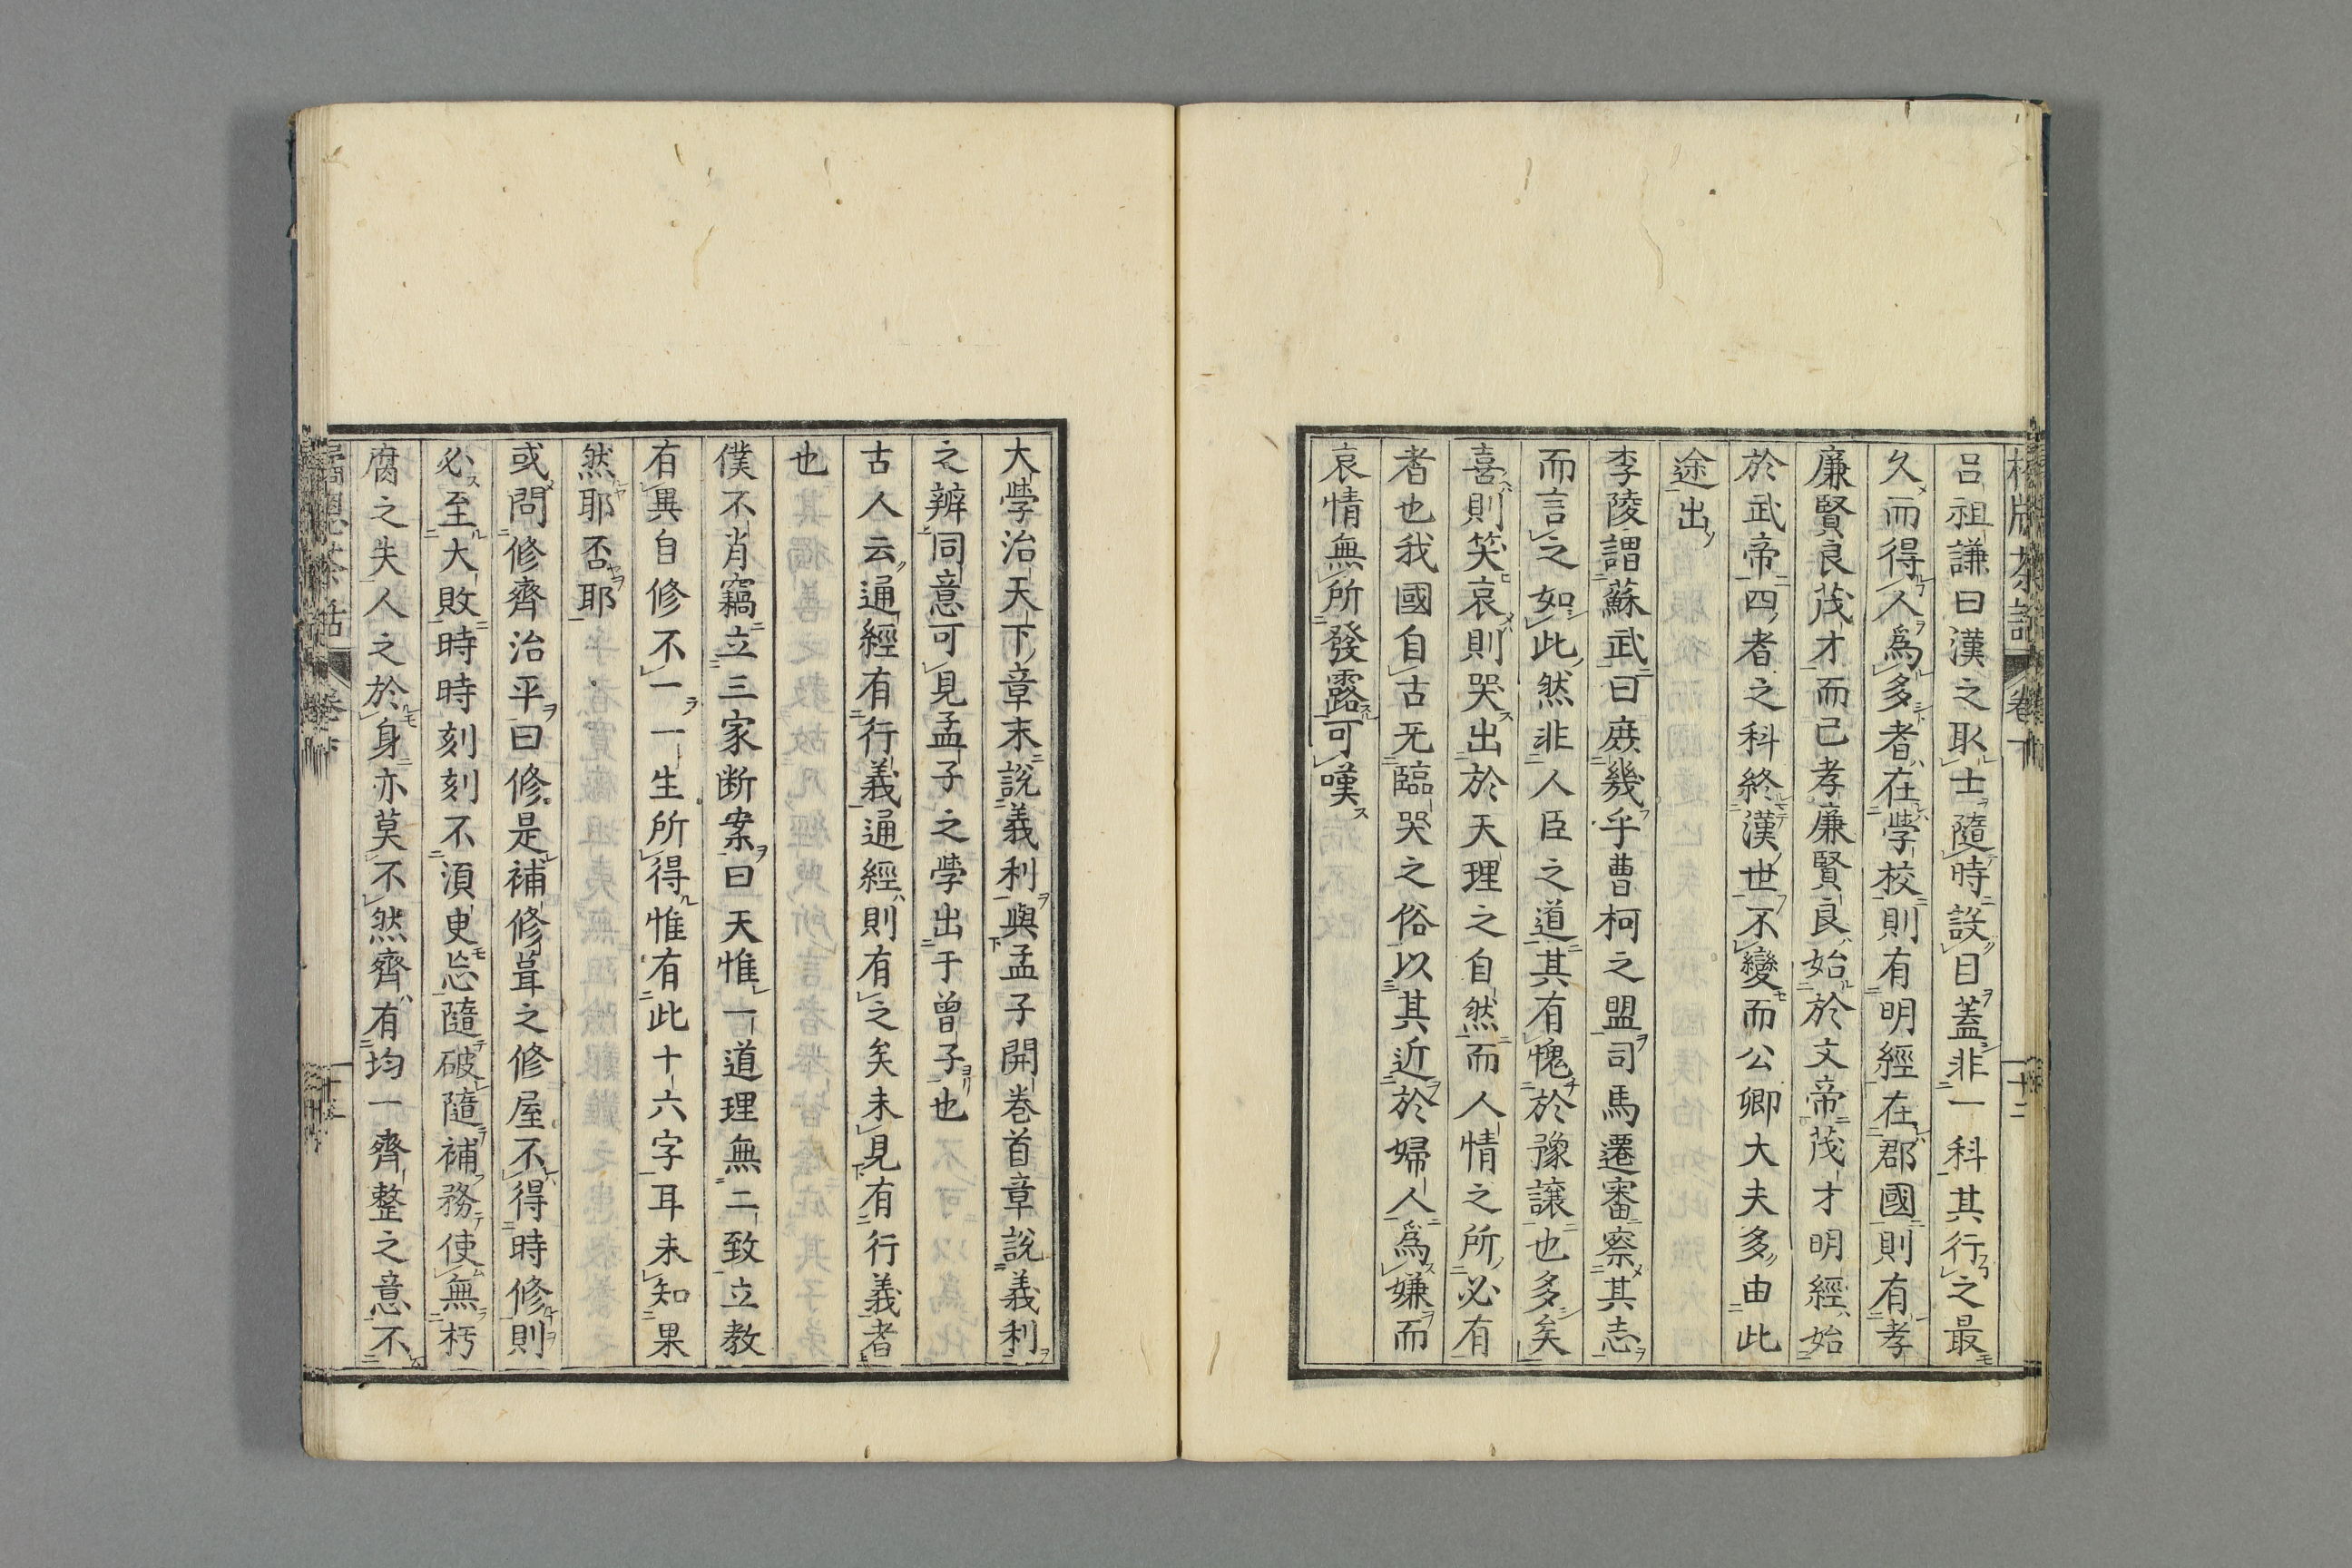 呂祖謙曰漢之取士隨時設目蓋非一科其行之最
久而得人爲多者在學校則有明經在郡國則有孝
廉賢良茂才而已孝廉賢良始於文帝茂才明經始
於武帝四者之科終漢世不變而公卿大夫多由此
途出
李陵謂蘇武曰庶幾乎曹柯之盟司馬遷審察其志
而言之如此然非人臣之道其有愧於豫讓也多矣
喜則笑哀則哭出於天理之自然而人情之所必有
者也我國自古无臨哭之俗以其近於婦人爲嫌而
哀情無所發露可嘆
大學治天下章末說義利與孟子開卷首章說義利
之辨同意可見孟子之學出于曾子也
古人云通經有行義通經則有之矣未見有行義者
也
僕不肖竊立三家断案曰天惟一道理無二致立教
有異自修不一一生所得惟有此十六字耳未知果
然耶否耶
或問修齊治平曰修是補修葺之修屋不得時修則
必至大敗時時刻刻不須臾忘隨破隨補務使無朽
腐之失人之於身亦莫不然齊有均一齊整之意不